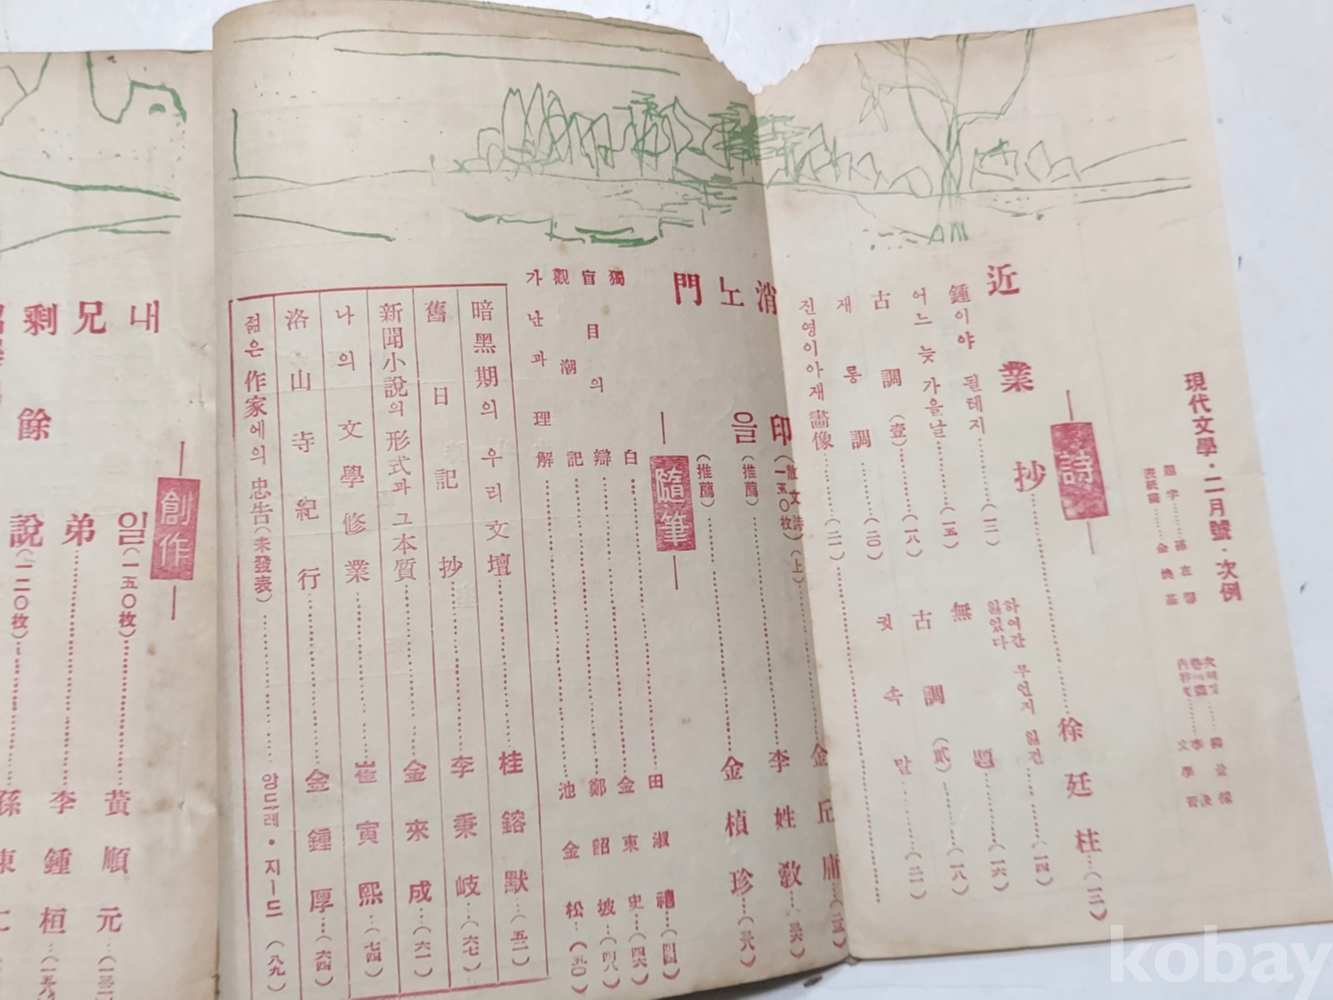 現代文學・二月號・次例
詩
近業抄……徐廷柱…(一二)
鍾이야 될테지……(一三)
어느 늦가을날……(一五)
古調(壹)……(一八)
재롱調……(二〇)
진영이아재畵像……(二一)
하여간 무언지 잃건
잃었다……(一四)
無題……(一六)
古調(貳)……(一八)
귓속말……(二一)
消
印(一五〇枚)
노을(推薦)……李姓敎…(三六)
門(推薦)……金楨珍…(三八)
隨筆
獨白……田淑禧…(四四)
盲目의辯……金東史…(四六)
觀潮記……鄭韶坡…(四八)
가난과 理解……池金松…(五〇)
暗黑期의 우리文壇……桂鎔默…(五二)
舊日記抄……李秉岐…(六七)
新聞小說의 形式과 그本質……金來成…(六一)
나의 文學修業……崔寅熙…(七四)
洛山寺紀行……金鍾厚…(六四)
젊은 作家에의 忠告(未發表)……앙드레・지―드(八九)
創作
내일(一五〇枚)……黃順元
兄弟……李鍾桓
剩餘說(一二〇枚)……孫東仁